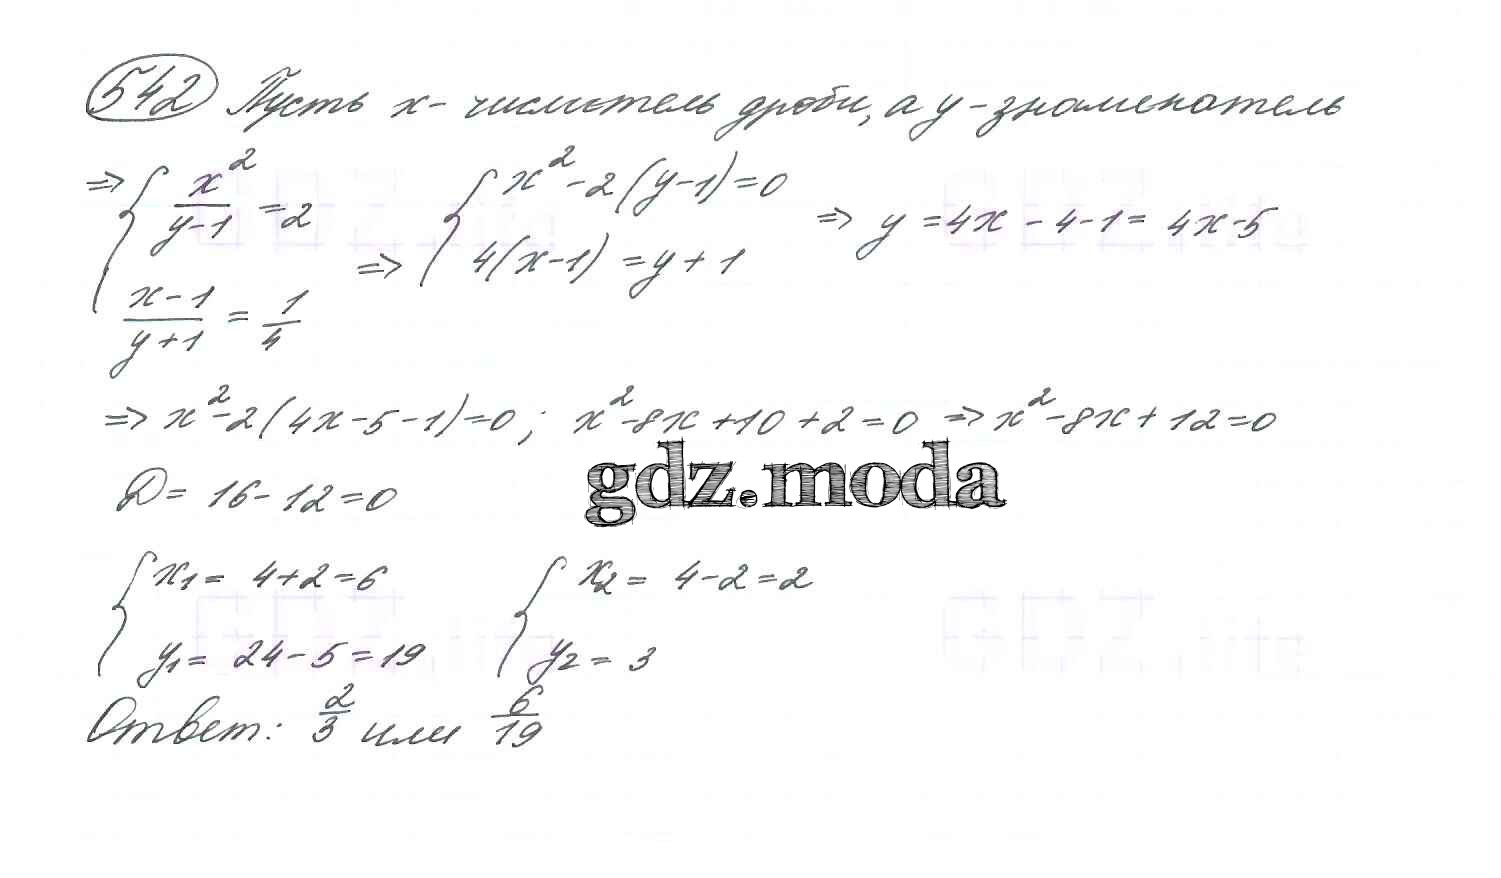 542 Пусть x - числитель дроби, а y - знаменатель
⇒ { x²/(y-1) = 2
(x-1)/(y+1) = 1/4
⇒ { x² - 2(y-1) = 0
4(x-1) = y + 1
⇒ y = 4x - 4 - 1 = 4x - 5
⇒ x² - 2(4x - 5 - 1) = 0 ; x² - 8x + 10 + 2 = 0 ⇒ x² - 8x + 12 = 0
gdz.moda
D = 16 - 12 = 0
{ x₁ = 4 + 2 = 6
y₁ = 24 - 5 = 19
{ x₂ = 4 - 2 = 2
y₂ = 3
Ответ: 2/3 или 6/19
GDZ.lite
GDZ.lite
GDZ.lite
GDZ.lite